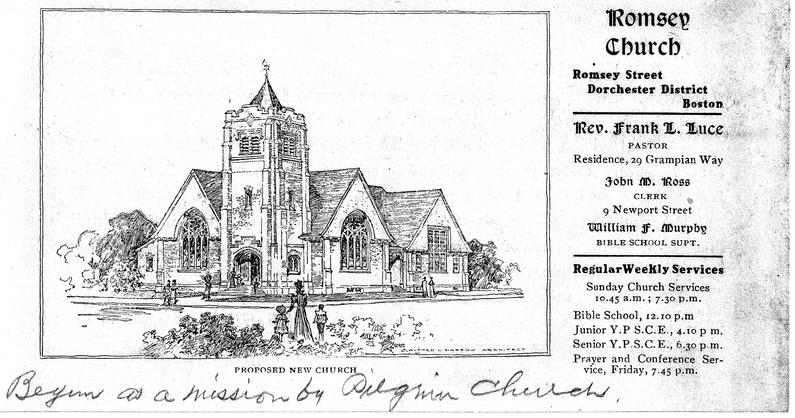 Romsey
Church
Romsey Street
Dorchester District
Boston
Rev. Frank L. Luce
PASTOR
Residence, 29 Grampian Way
John M. Ross
CLERK
9 Newport Street
William F. Murphy
BIBLE SCHOOL SUPT.
Regular Weekly Services
Sunday Church Services
10.45 a.m.; 7.30 p.m.
Bible School, 12.10 p.m
Junior Y.P S.C.E., 4.10 p m.
Senior Y.P.S.C.E., 6.30 p.m.
Prayer and Conference Ser-
vice, Friday, 7.45 p.m.
ARCHITECT
PROPOSED NEW CHURCH
Begun as a mission by Pilgrim Church.